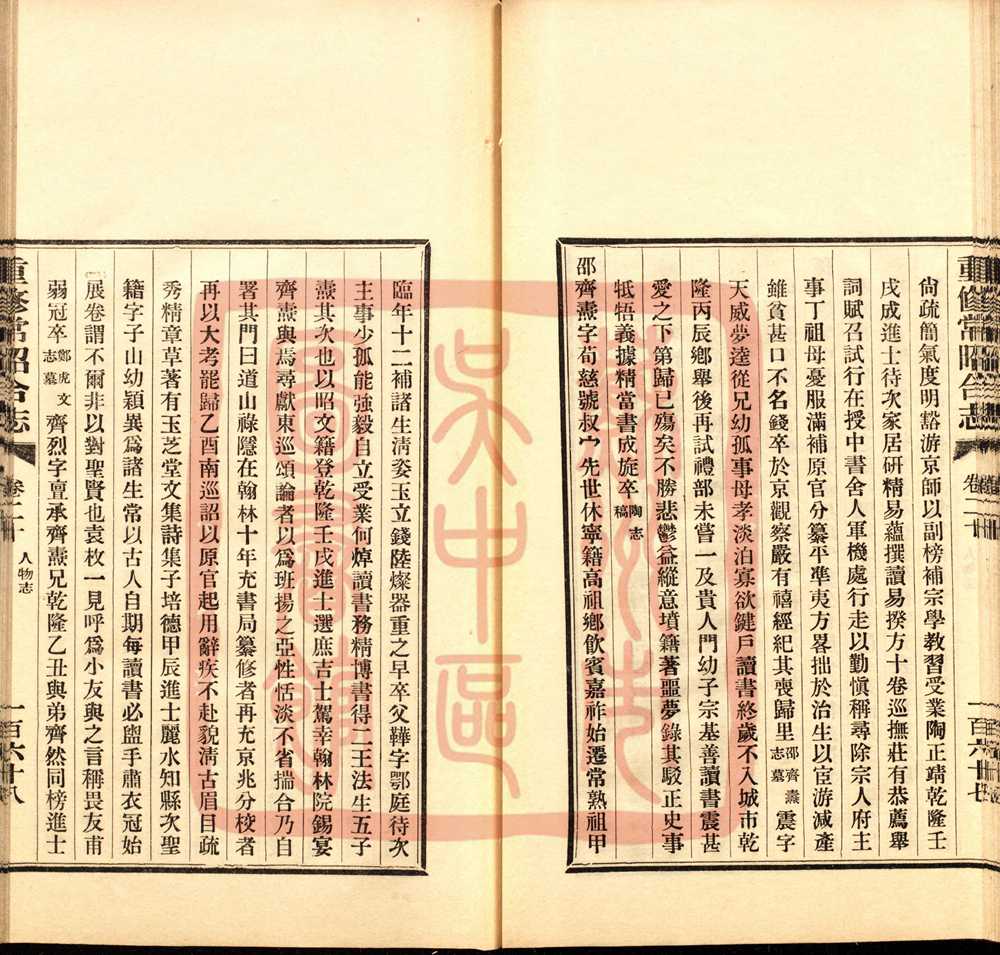 重修常昭合志
卷二十
一百六十七
尙疏簡氣度明豁游京師以副榜補宗學教習受業陶正靖乾隆壬
戌成進士待次家居研精易蘊撰讀易揆方十卷巡撫莊有恭薦舉
詞賦召試行在授中書舍人軍機處行走以勤愼稱尋除宗人府主
事丁祖母憂服滿補原官分纂平準夷方畧拙於治生以宦游減產
雖貧甚口不名錢卒於京觀察嚴有禧經紀其喪歸里邵齊燾志墓震字
天威夢逵從兄幼孤事母孝淡泊寡欲鍵戶讀書終歲不入城市乾
隆丙辰鄉舉後再試禮部未嘗一及貴人門幼子宗基善讀書震甚
愛之下第歸已殤矣不勝悲鬱益縱意墳籍著噩夢錄其駁正史事
牴牾義據精當書成旋卒陶志稿
邵齊燾字荀慈號叔宀先世休寧籍高祖鄉飮賓嘉祚始遷常熟祖甲
臨年十二補諸生淸姿玉立錢陸燦器重之早卒父鞾字鄂庭待次
主事少孤能強毅自立受業何焯讀書務精博書得二王法生五子
燾其次也以昭文籍登乾隆壬戌進士選庶吉士駕幸翰林院錫宴
齊燾與焉尋獻東巡頌論者以爲班揚之亞性恬淡不省揣合乃自
署其門曰道山祿隱在翰林十年充書局纂修者再充京兆分校者
再以大考罷歸乙酉南巡詔以原官起用辭疾不赴貌淸古眉目疏
秀精章草著有玉芝堂文集詩集子培德甲辰進士麗水知縣次聖
籍字子山幼穎異爲諸生常以古人自期每讀書必盥手肅衣冠始
展卷謂不爾非以對聖賢也袁枚一見呼爲小友與之言稱畏友甫
弱冠卒鄭虎文志墓齊烈字亶承齊燾兄乾隆乙丑與弟齊然同榜進士
重修常昭合志
卷二十
人物志
一百六十八
蘇州市
吳中區
圖書館